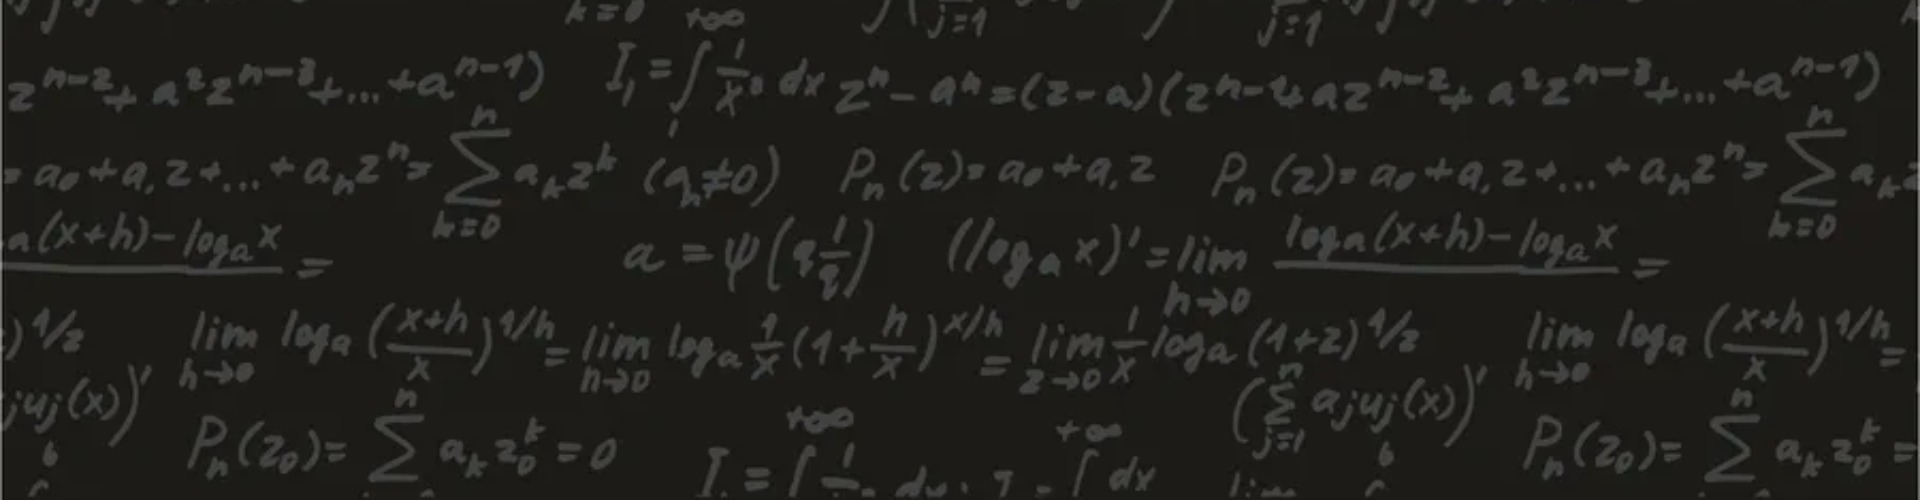 k=0 +∞ j=1 j=1
z^{n-2}+a²z^{n-3}+...+a^{n-1}) I₁=∫₁ 1/x dx zⁿ-aⁿ=(z-a)(z^{n-1}+az^{n-2}+a²z^{n-3}+...+a^{n-1})
=a₀+a₁z+...+aₙzⁿ=∑_{k=0}^{n} aₖzᵏ (aₙ≠0) Pₙ(z)=a₀+a₁z Pₙ(z)=a₀+a₁z+...+aₙzⁿ=∑_{k=0}^{n} aₖz
a(x+h)-logₐx = a=ψ(q 1/q) (logₐx)'=lim_{h→0} (loga(x+h)-logₐx) =
)^{1/2} lim_{h→0} logₐ((x+h)/x)^{1/h} = lim_{h→0} logₐ 1/x (1+h/x)^{x/h} = lim_{z→0} 1/x logₐ(1+z)^{1/z} lim_{h→0} logₐ((x+h)/x)^{1/h} =
juj(x))' Pₙ(z₀)=∑^{n} aₖz₀ᵏ=0 +∞ +∞ (∑_{j=1}^{n} ajuj(x))' Pₙ(z₀)=∑^{n} aₖz₀ᵏ=
b I₁=∫ 1 dx ∫dx lim b